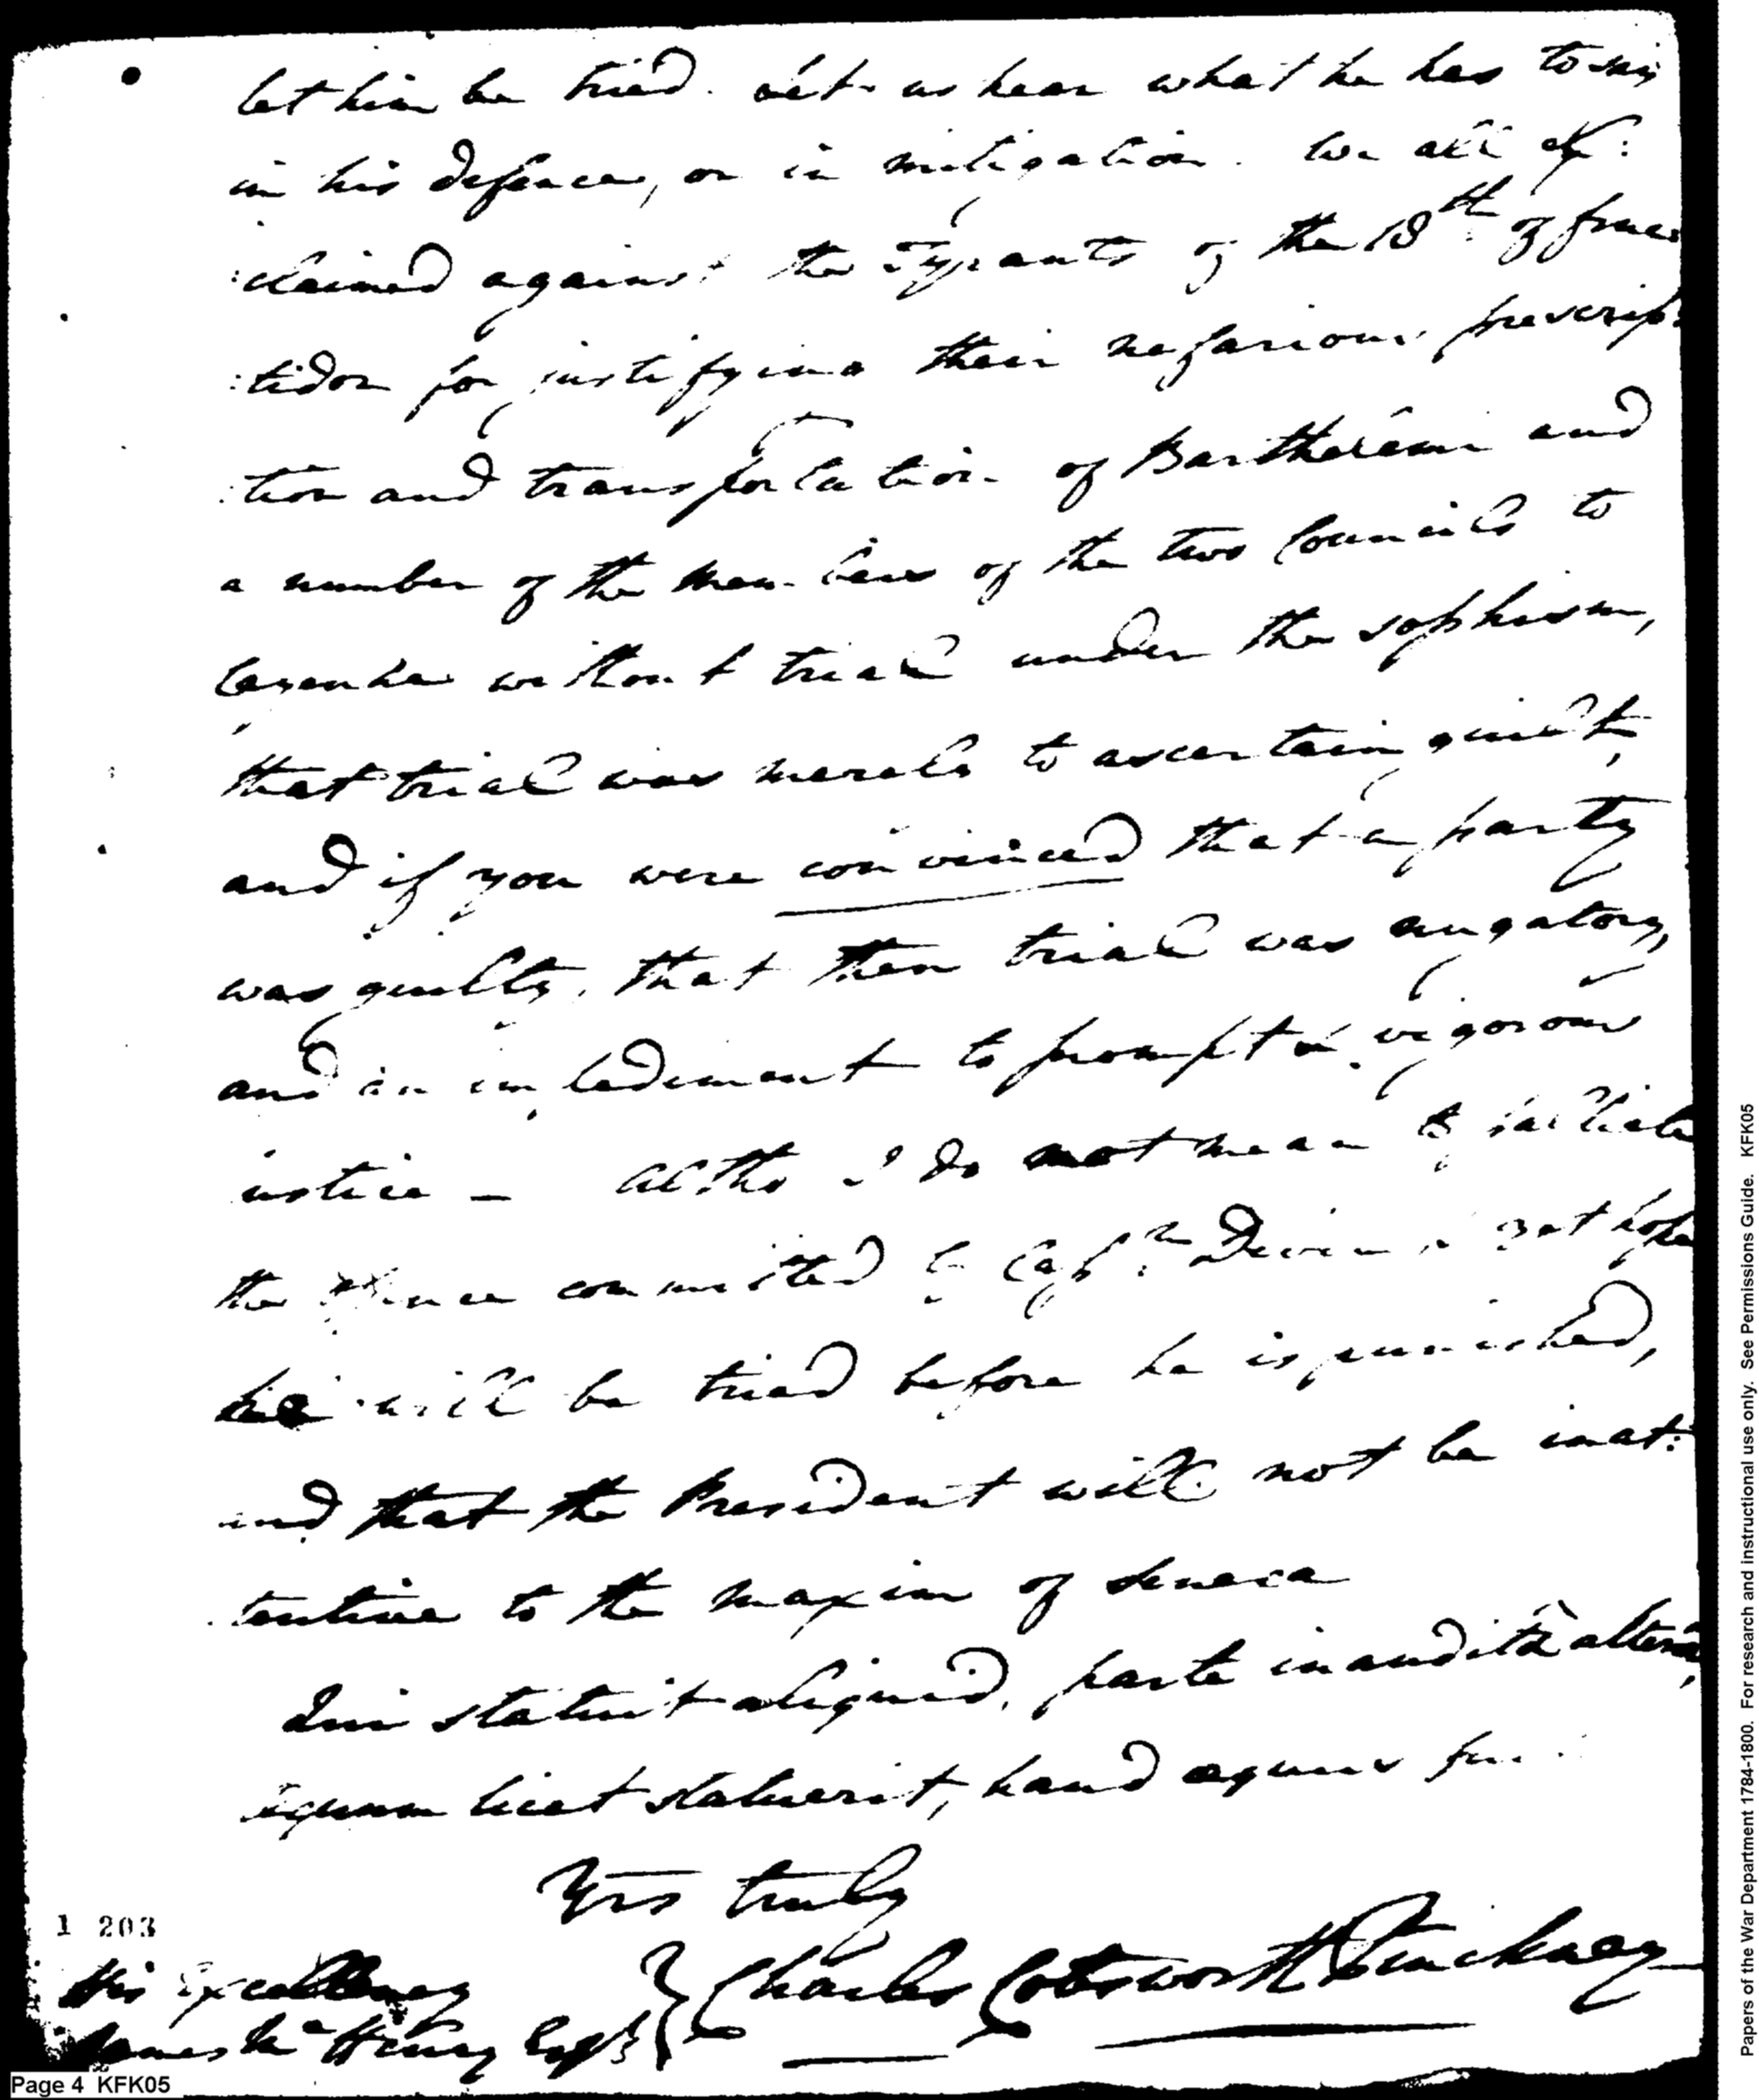 let him be tried. let us hear what he has to say
in his defence, or in mitigation. We all ex:
:claimed against the Tyrants of the 18th of fruc
:tidor for justifying their nefarious proscrip:
:tion and transportation of Barthélemi and
a number of the members of the two Councils to
Cayenne without trial under the sophism,
that trial was merely to ascertain guilt,
and if you were convinced that a party
was guilty, that then trial was nugatory,
and an impediment to prompt & vigorous
justice — altho I do not mean to palliate
the offence committed by Capt:n I yet hope
he will be tried before he is punished,
and that the President will not be inat:
:tentive to the maxim of Seneca
Qui statuit aliquid, parte inauditâ alterâ,
æquum licet statuerit, haud æquus fu
Yrs truly
Charles Cotesworth Pinckney
1 203
His Excellency
James McHenry Esqr
Page 4 KFK05
Papers of the War Department 1784-1800. For research and instructional use only. See Permissions Guide. KFK05